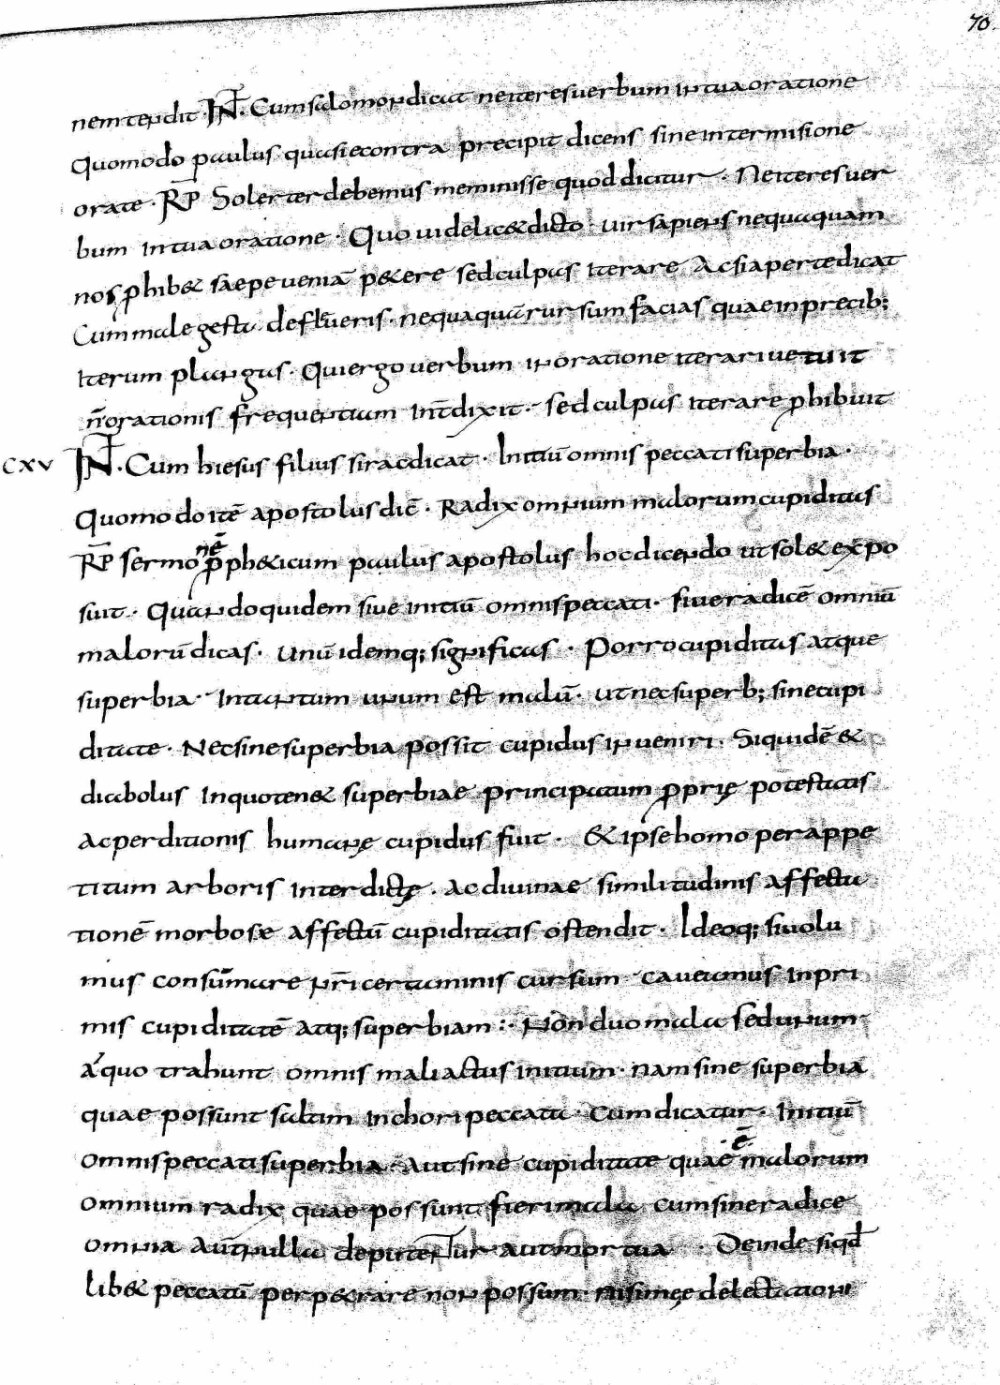 70.
nem tendit · IN̄. Cum salomon dicat ne iteres uerbum in tua oratione
Quomodo paulus quasi econtra precipit dicens sine intermisione
orate · R̄P̄ Solerter debemus meminisse quod dicitur · Ne iteres uer
bum in tua oratione · Quo uidelic& dicto · uir sapiens nequaquam
nos ꝓhib& saepe ueniā p&ere sed culpas iterare Ac si aperte dicat
Cum male gesta defleueris · nequaquā rursum facias quae in precib;
Iterum plangas · Qui ergo uerbum in oratione iterari uetuit
n̄ orationis frequentium int̄dixit · sed culpas iterare ꝓhibuit
CXV IN̄. Cum hiesus filius sirac dicat · Initiū omnis peccati superbia ·
Quomodo itē apostolus dic̄ · Radix omnium malorum cupiditas
R̄P̄ sermonē ꝓph&icum paulus apostolus hoc dicendo ut sol& expo
suit · Quando quidem siue initiū omnis peccati · siue radicē omniū
malorū dicas · unū idemq; significas · Porro cupiditas atque
superbia · In tantum unum est malū · ut nec superb; sine cupi
ditate · Nec sine superbia possit cupidus inueniri · Siquidē &
diabolus Inquoten& superbiae principatum ꝓprię potestatis
Ac perditionis humanę cupidus fuit · & ipse homo per appe
titum arboris interdictę · ac diuinae similitudinis affecta
tionē morbosæ affectū cupiditatis ostendit · Ideoq; si uolu
mus consūmare nr̄i certaminis cursum caueamus inpri
mis cupiditatē atq; superbiam :· Non duo mala sed unum
a quo trahunt omnis mali actus initium · nam sine superbia
quae possunt saltim inchori peccata · Cum dicatur · Initiū
omnis peccati superbia · Aut sine cupiditate quae ·ē· malorum
omnium radix quae possunt fieri mala cum sine radice
omnia aut̄ nulla deputentur aut mortua · Deinde siqd̄
lib& peccatū perp&rare non possum nisi męe delectationi